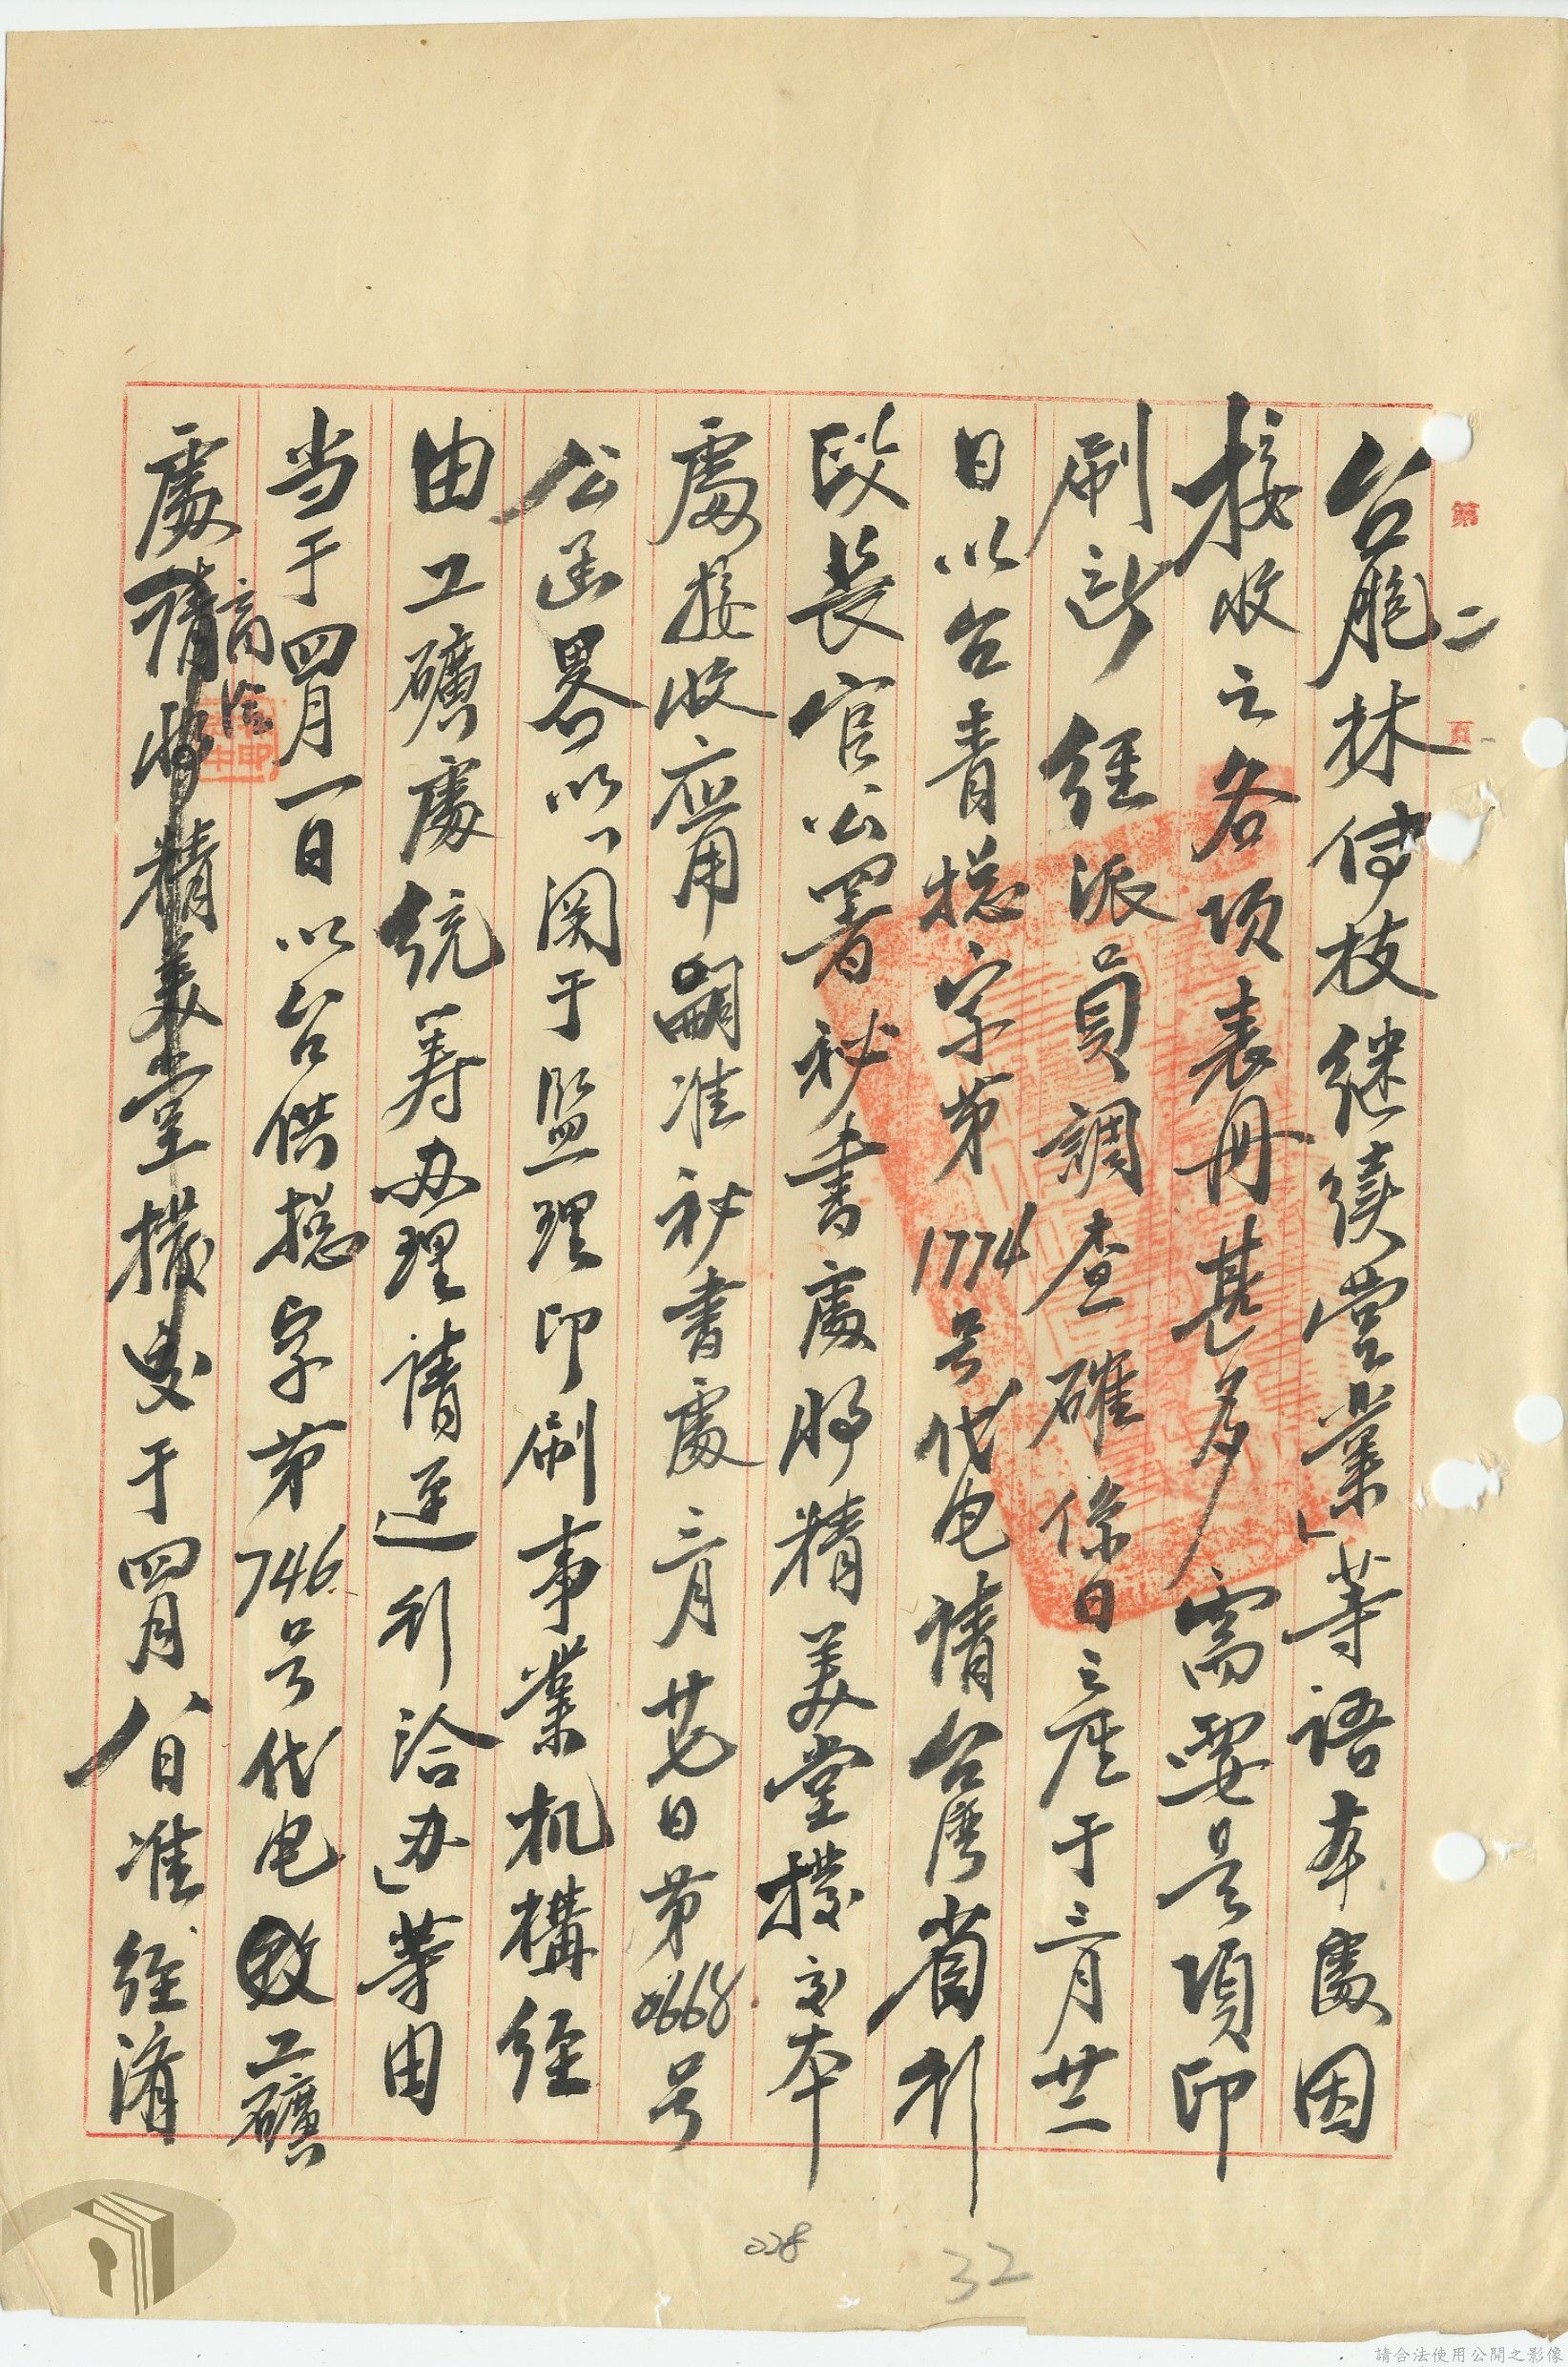 第二頁
台胞林傳枝继续营業」等語本處因
接收之各项表冊甚多需要是項印
刷所经派員調查確係日产于三月廿三
日以台青总字第1774号代电請台湾省行
政長官公署秘书處將精美堂撥交本
處接收应用嗣准秘書處三月廿七日第0668号
公函畧以「関于監理印刷事業机構经
由工礦處統筹办理请逕行洽办」等由
当于四月一日以台供总字第746号代电致工礦
處請將精美堂撥交于四月八日准经济
商洽
028
32
請合法使用公開之影像